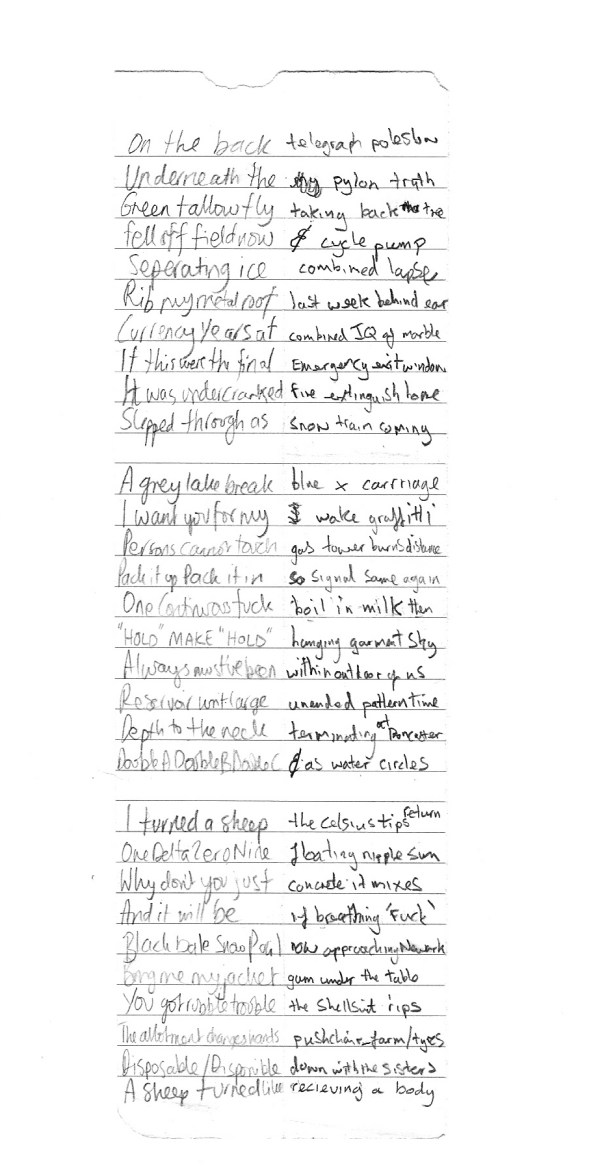 On the back telegraph poles
Underneath the pylon truth
Green tallow fly taking back the tre
fell off field now & cycle pump
Seperating ice combined lapse
Rib my metal roof last week behind ear
Currency Years at combined IQ of marble
If this were the final Emergency exit window
It was undercranked fire extinguish
Slepped through as snow train coming
A grey lake break blue x carrriage
I want you for my wake graffitti
Persons cannot touch gas tower burns distance
Pack it up Pack it in so signal same again
One Continuous fuck boil in milk then
"HOLD" MAKE "HOLD" hanging garment sky
Always must've been within outdoor of us
Reservoir writ large unended pattern time
Depth to the neck terminating at Doncaster
Double A Double B Double C as water circles
I turned a sheep the celsius tips return
One Delta Zero Nine floating nipple sun
Why don't you just concrete it mixes
And it will be if breathing 'Fuck'
Black bale Snow now approaching Newark
Bring me my jacket gum under the table
You got rubble trouble the shellsuit rips
The allotment changes hands pushchair farm/tyres
Disposable/Disponible down with the sisters
A sheep turned like recieving a body